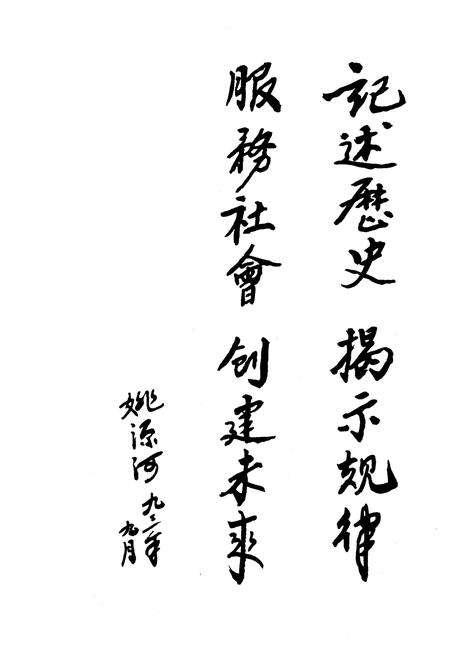 記述歷史 揭示規律
服務社會 創建未來
姚源河 九二年
九月